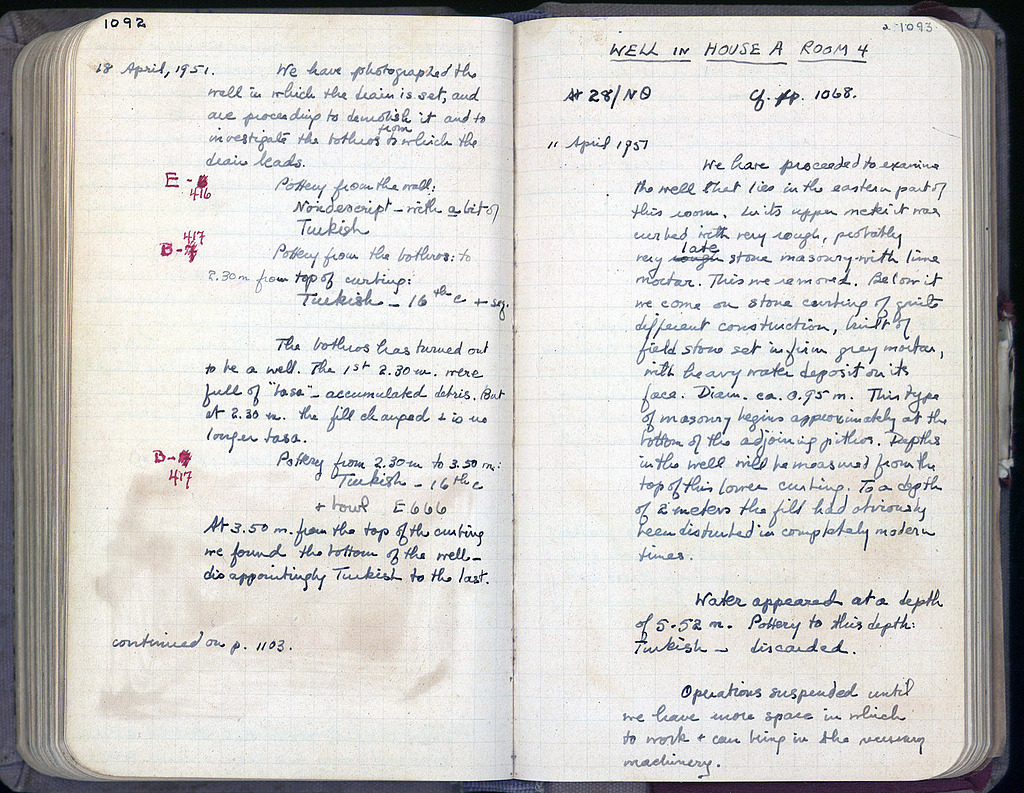 1092
18 April, 1951. We have photographed the
wall in which the drain is set, and
are proceeding to demolish it and to
from
investigate the bothros to which the
drain leads.
E -
416
Pottery from the wall:
Nondescript - with a bit of
Turkish
417
B -
Pottery from the bothros: to
2.30 m from top of curbing:
Turkish - 16th c + seq.
The bothros has turned out
to be a well. The 1st 2.30 m. were
full of "basa" - accumulated debris. But
at 2.30 m. the fill changed + is no
longer basa.
B -
417
Pottery from 2.30 m to 3.50 m:
Turkish - 16th c
+ bowl E 666
At 3.50 m. from the top of the curbing
we found the bottom of the well -
disappointingly Turkish to the last.
continued on p. 1103.
1093
WELL IN HOUSE A ROOM 4
28/ΝΘ cf. p. 1068.
11 April 1951
We have proceeded to examine
the well that lies in the eastern part of
this room. In its upper meter it was
curbed with very rough, probably
late
very rough stone masonry with lime
mortar. This we removed. Below it
we come on stone curbing of quite
different construction, built of
field stone set in firm grey mortar,
with heavy water deposit on its
face. Diam. ca. 0.95 m. This type
of masonry begins approximately at the
bottom of the adjoining pithos. Depths
in the well will be measured from the
top of this lower curbing. To a depth
of 2 meters the fill had obviously
been disturbed in completely modern
times.
Water appeared at a depth
of 5.52 m. Pottery to this depth:
Turkish - discarded.
Operations suspended until
we have more space in which
to work + can bring in the necessary
machinery.